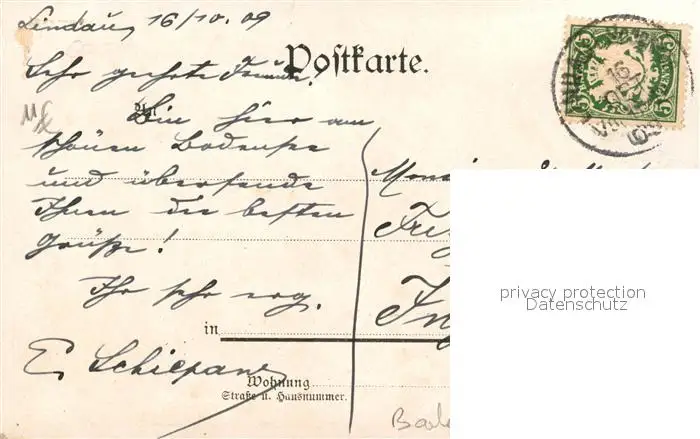 Lindau, 16/10. 09
Postkarte.
Sehr geehrte
Bin hier am
schönen Bodensee
und übersende
Ihnen die besten
Grüße!
Ihr sehr erg.
E. Schiepan
Monsieur
in
Wohnung
Straße u. Hausnummer.
privacy protection
Datenschutz